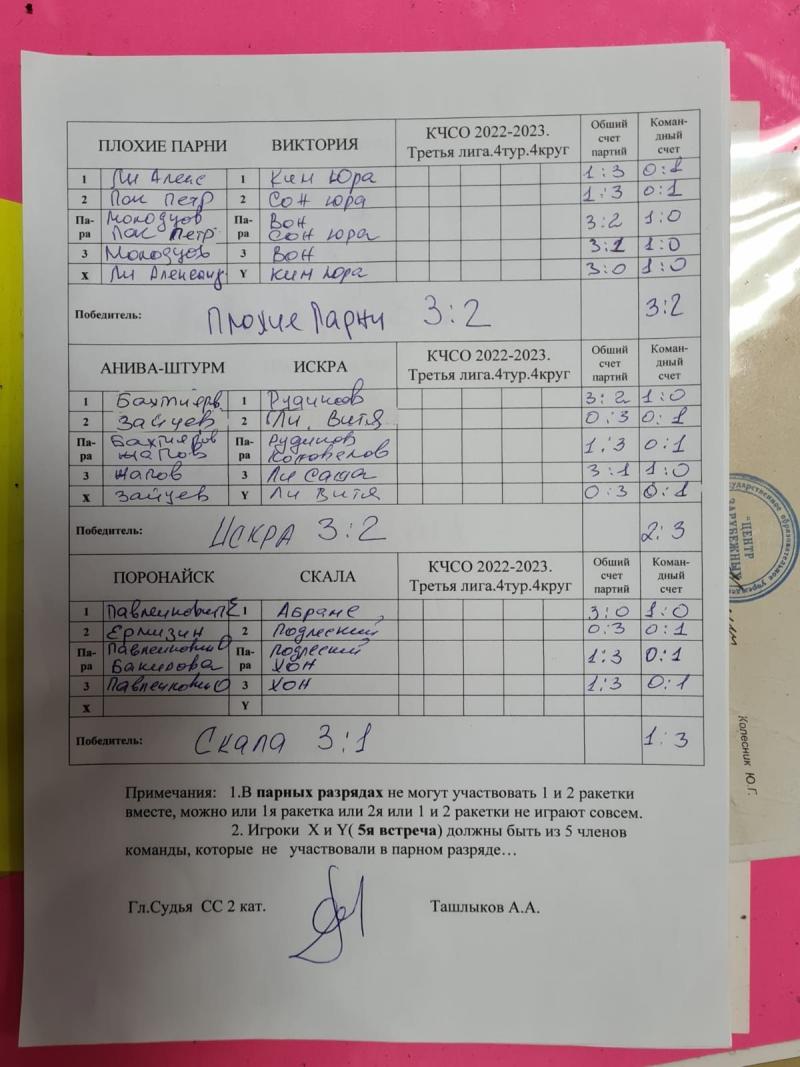 ПЛОХИЕ ПАРНИ ВИКТОРИЯ КЧСО 2022-2023. Третья лига.4тур.4круг Общий счет партий Коман-дный счет
1 Ли Алекс 1 Ким Юра 1:3 0:1
2 Пак Петр 2 Сон Юра 1:3 0:1
Па-ра Молодцов Пак Петр Па-ра Вон Сон Юра 3:2 1:0
3 Молодцов 3 Вон 3:1 1:0
X Ли Александр Y Ким Юра 3:0 1:0
Победитель: Плохие Парни 3:2 3:2
АНИВА-ШТУРМ ИСКРА КЧСО 2022-2023. Третья лига.4тур.4круг Общий счет партий Коман-дный счет
1 1 Рудиков 3:2 1:0
2 Зайцев 2 Ли Витя 0:3 0:1
Па-ра Бахтияров Шапов Па-ра Рудиков 1:3 0:1
3 Шапов 3 Ли Саша 3:1 1:0
X Зайцев Y Ли Витя 0:3 0:1
Победитель: Искра 3:2 2:3
ПОРОНАЙСК СКАЛА КЧСО 2022-2023. Третья лига.4тур.4круг Общий счет партий Коман-дный счет
1 1 3:0 1:0
2 2 0:3 0:1
Па-ра Па-ра ХОН 1:3 0:1
3 3 ХОН 1:3 0:1
X Y
Победитель: Скала 3:1 1:3
Примечания: 1.В парных разрядах не могут участвовать 1 и 2 ракетки
вместе, можно или 1я ракетка или 2я или 1 и 2 ракетки не играют совсем.
2. Игроки X и Y( 5я встреча) должны быть из 5 членов
команды, которые не участвовали в парном разряде…
Гл.Судья СС 2 кат. Ташлыков А.А.
"ЦЕНТР
ЗАРУБЕЖНЫХ
Колесник Ю.Г.